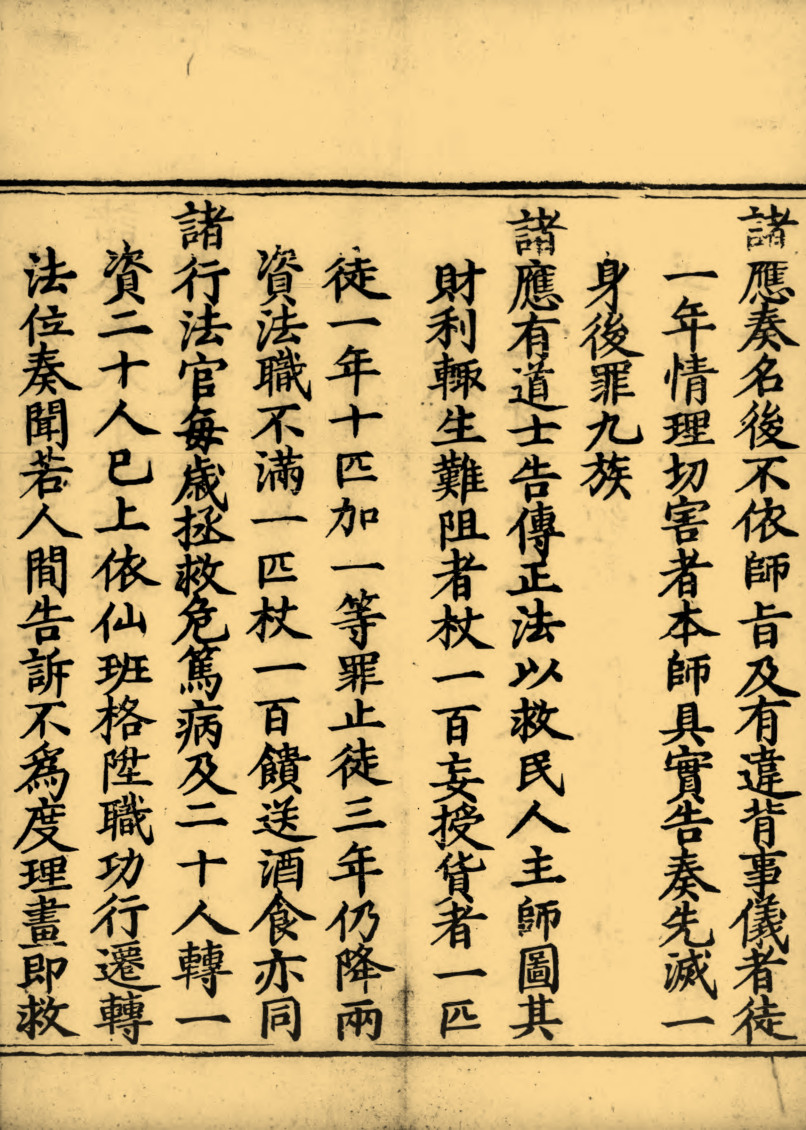 諸應奏名後不依師旨及有違背事儀者徒
一年情理切害者本師具實告奏先滅一
身後罪九族
諸應有道士告傳正法以救民人主師圖其
財利輙生難阻者杖一百妄授貨者一匹
徒一年十匹加一等罪止徒三年仍降兩
資法職不滿一匹杖一百饋送酒食亦同
諸行法官每歲拯救危篤病及二十人轉一
資二十人已上依仙班格陞職功行遷轉
法位奏聞若人間告訴不爲度理畫即救